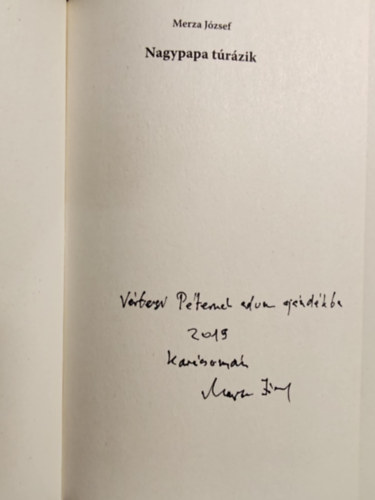 Merza József
Nagypapa túrázik
Péternek adom ajándékba
2019
Karácsonán
Merza József